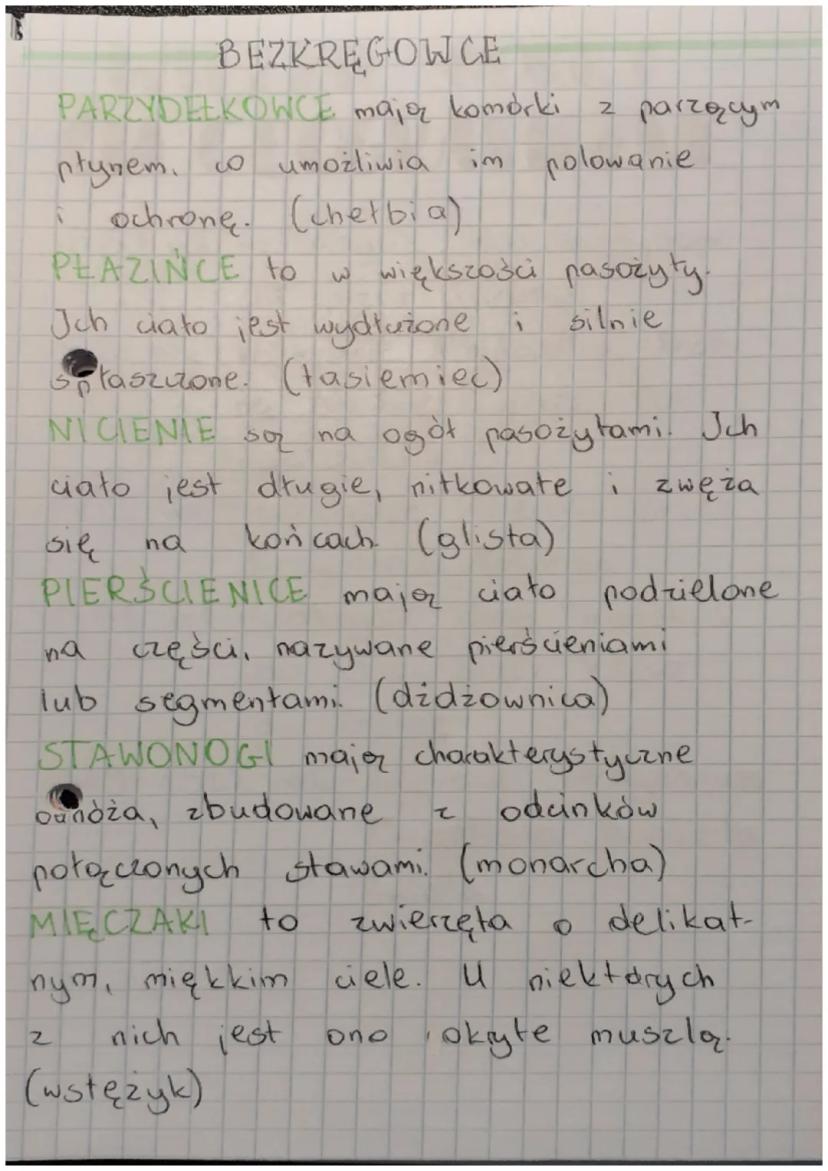 BEZKRĘGOWCE
PARZYDEŁKOWCE mają komórki z parzącym
płynem, co umożliwia im polowanie
i ochronę. (chełbia)
PŁAZIŃCE to w większości pasożyty.
Ich ciało jest wydłużone i silnie
spłaszczone. (tasiemiec)
NICIENIE są na ogół pasożytami. Ich
ciało jest długie, nitkowate i zwęża
się na końcach (glista)
PIERŚCIENICE mają ciało podzielone
na części, nazywane pierścieniami
lub segmentami. (dżdżownica)
STAWONOGI mają charakterystyczne
odnóża, zbudowane z odcinków
połączonych stawami. (monarcha)
MIĘCZAKI to zwierzęta o delikat-
nym, miękkim ciele. U niektórych
z nich jest ono okryte muszlą.
(wstężyk)